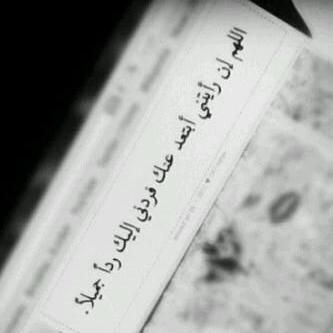 اللهم إن رأيتني أبتعد عنك فردني إليك رداً جميلاً.